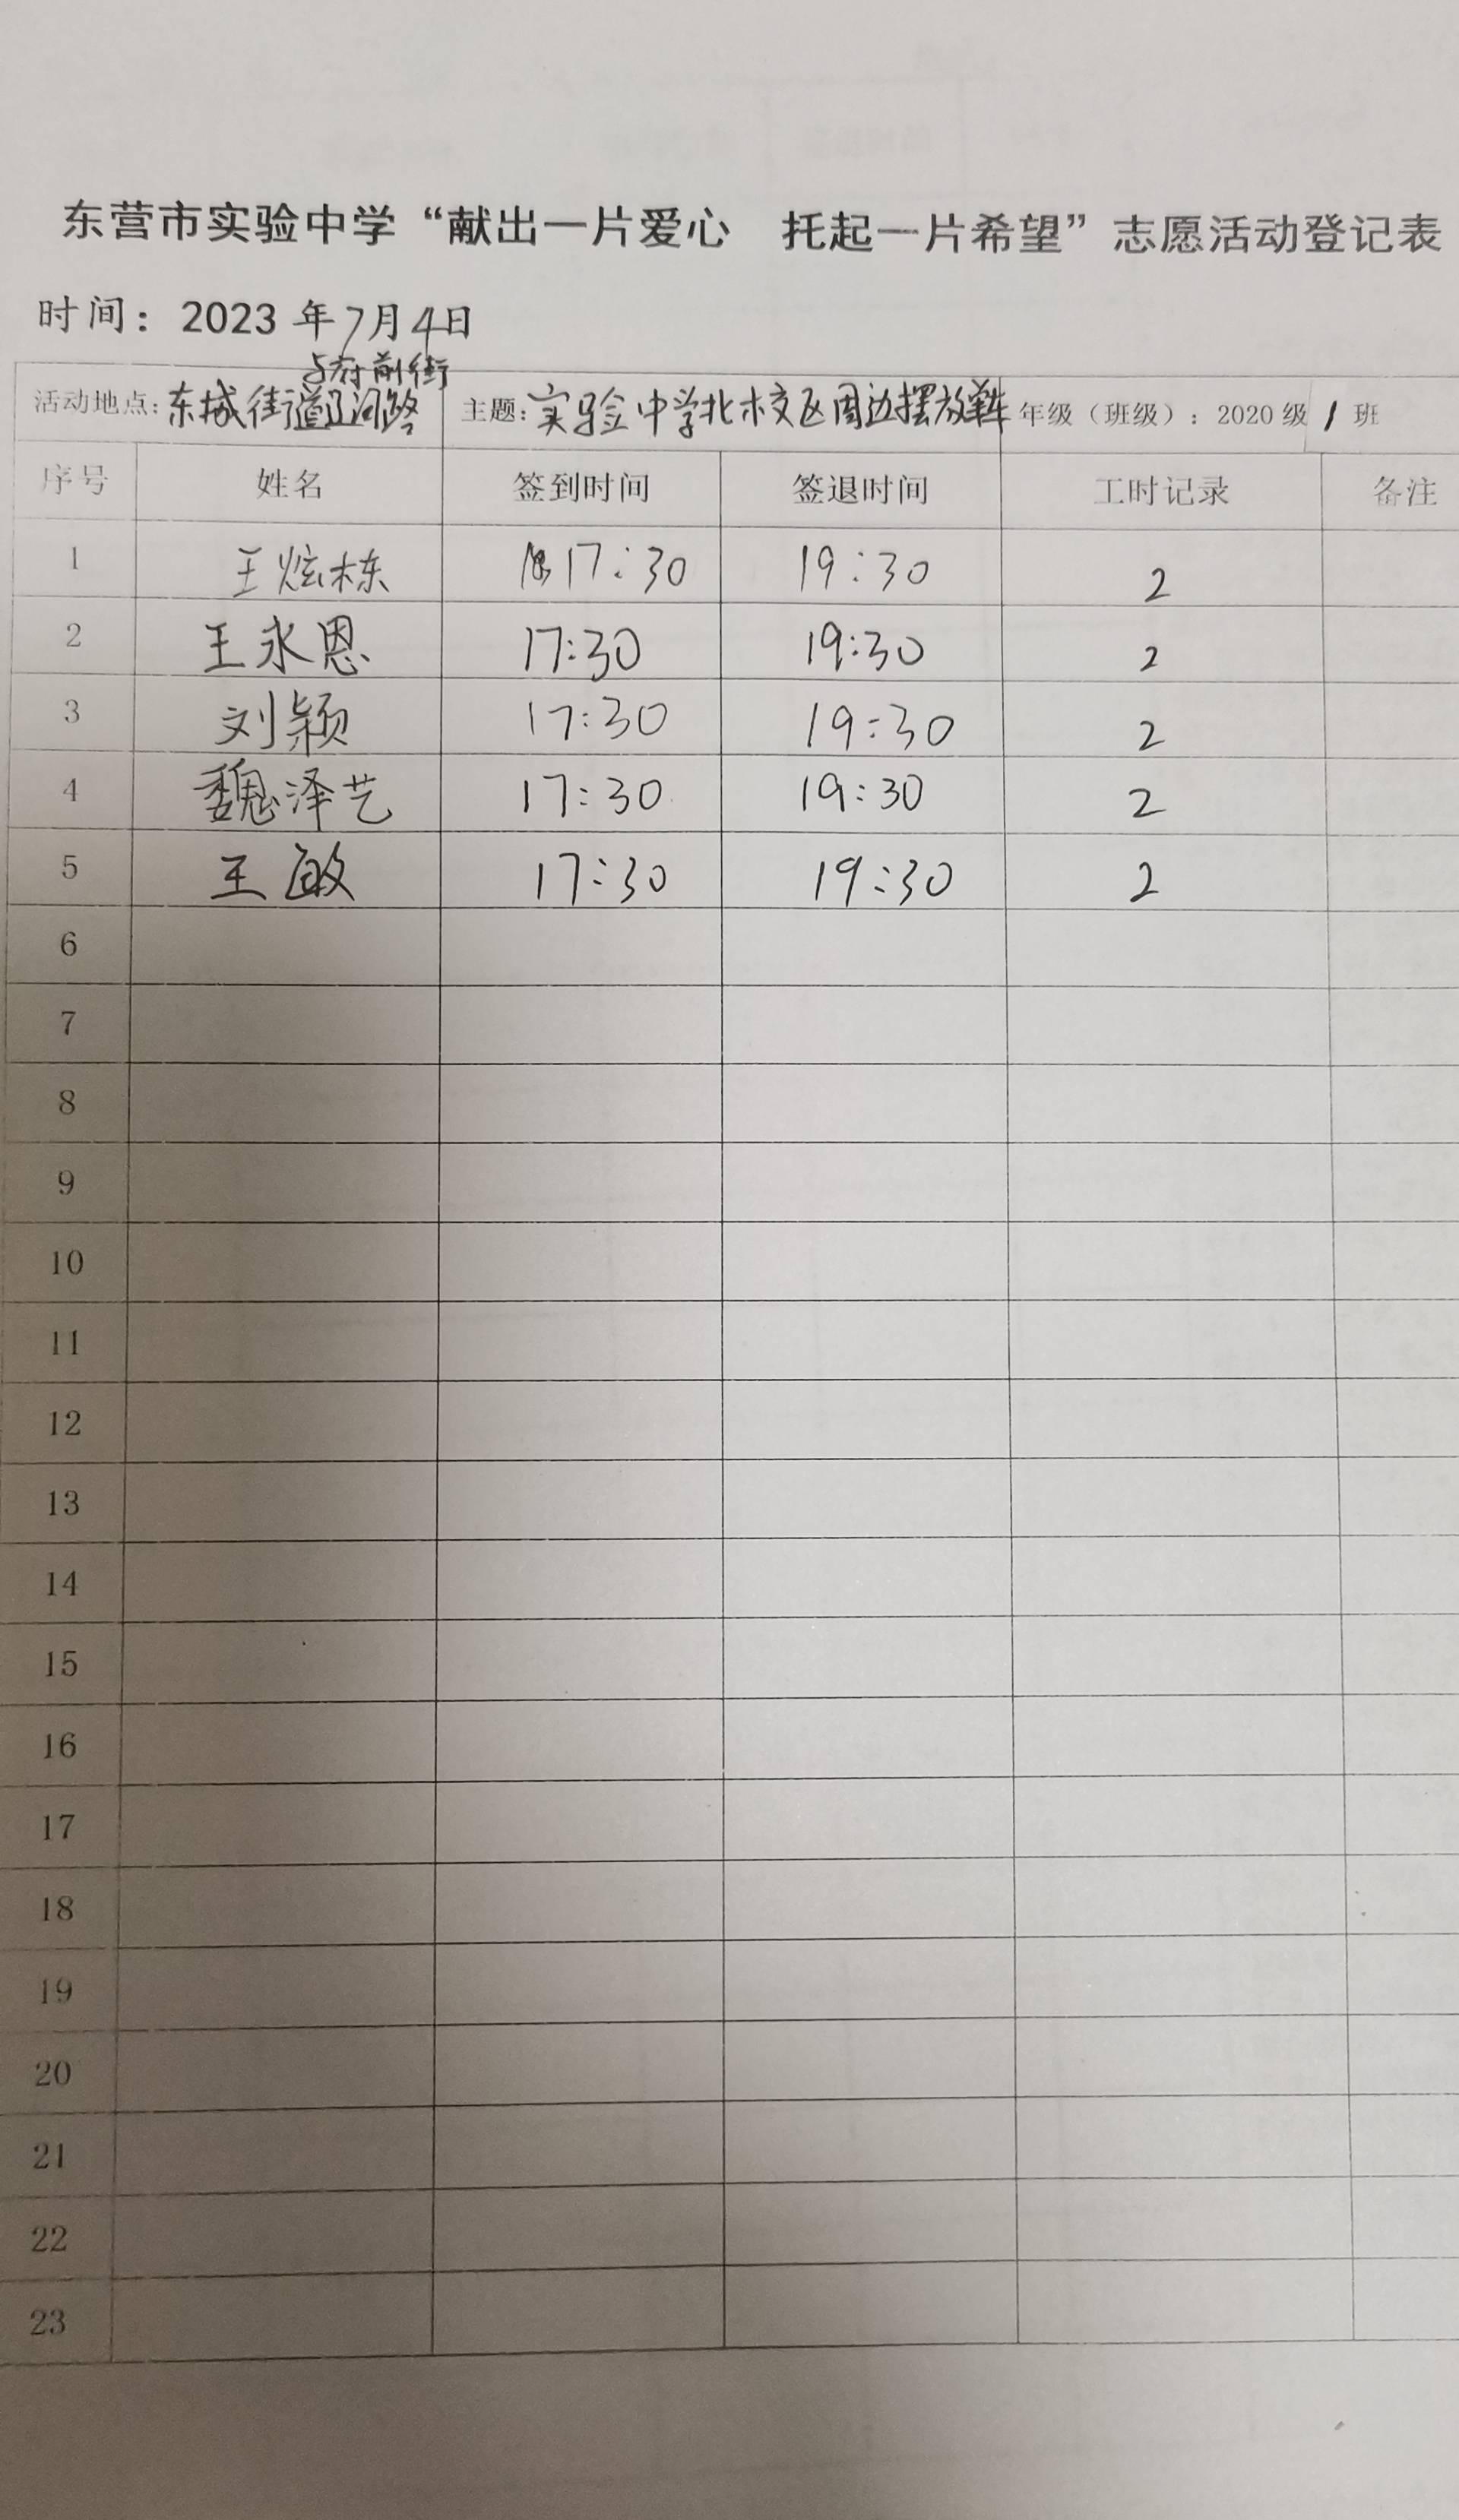 东营市实验中学“献出一片爱心 托起一片希望”志愿活动登记表
时间：2023 年7月4日
与府前街
活动地点：东城街道辽河路 主题：实验中学北校区周边摆放单车 年级（班级）：2020 级 1 班
序号 姓名 签到时间 签退时间 工时记录 备注
1 王炫栋 17:30 19:30 2
2 王永恩 17:30 19:30 2
3 刘颖 17:30 19:30 2
4 魏泽艺 17:30 19:30 2
5 王敏 17:30 19:30 2
6
7
8
9
10
11
12
13
14
15
16
17
18
19
20
21
22
23